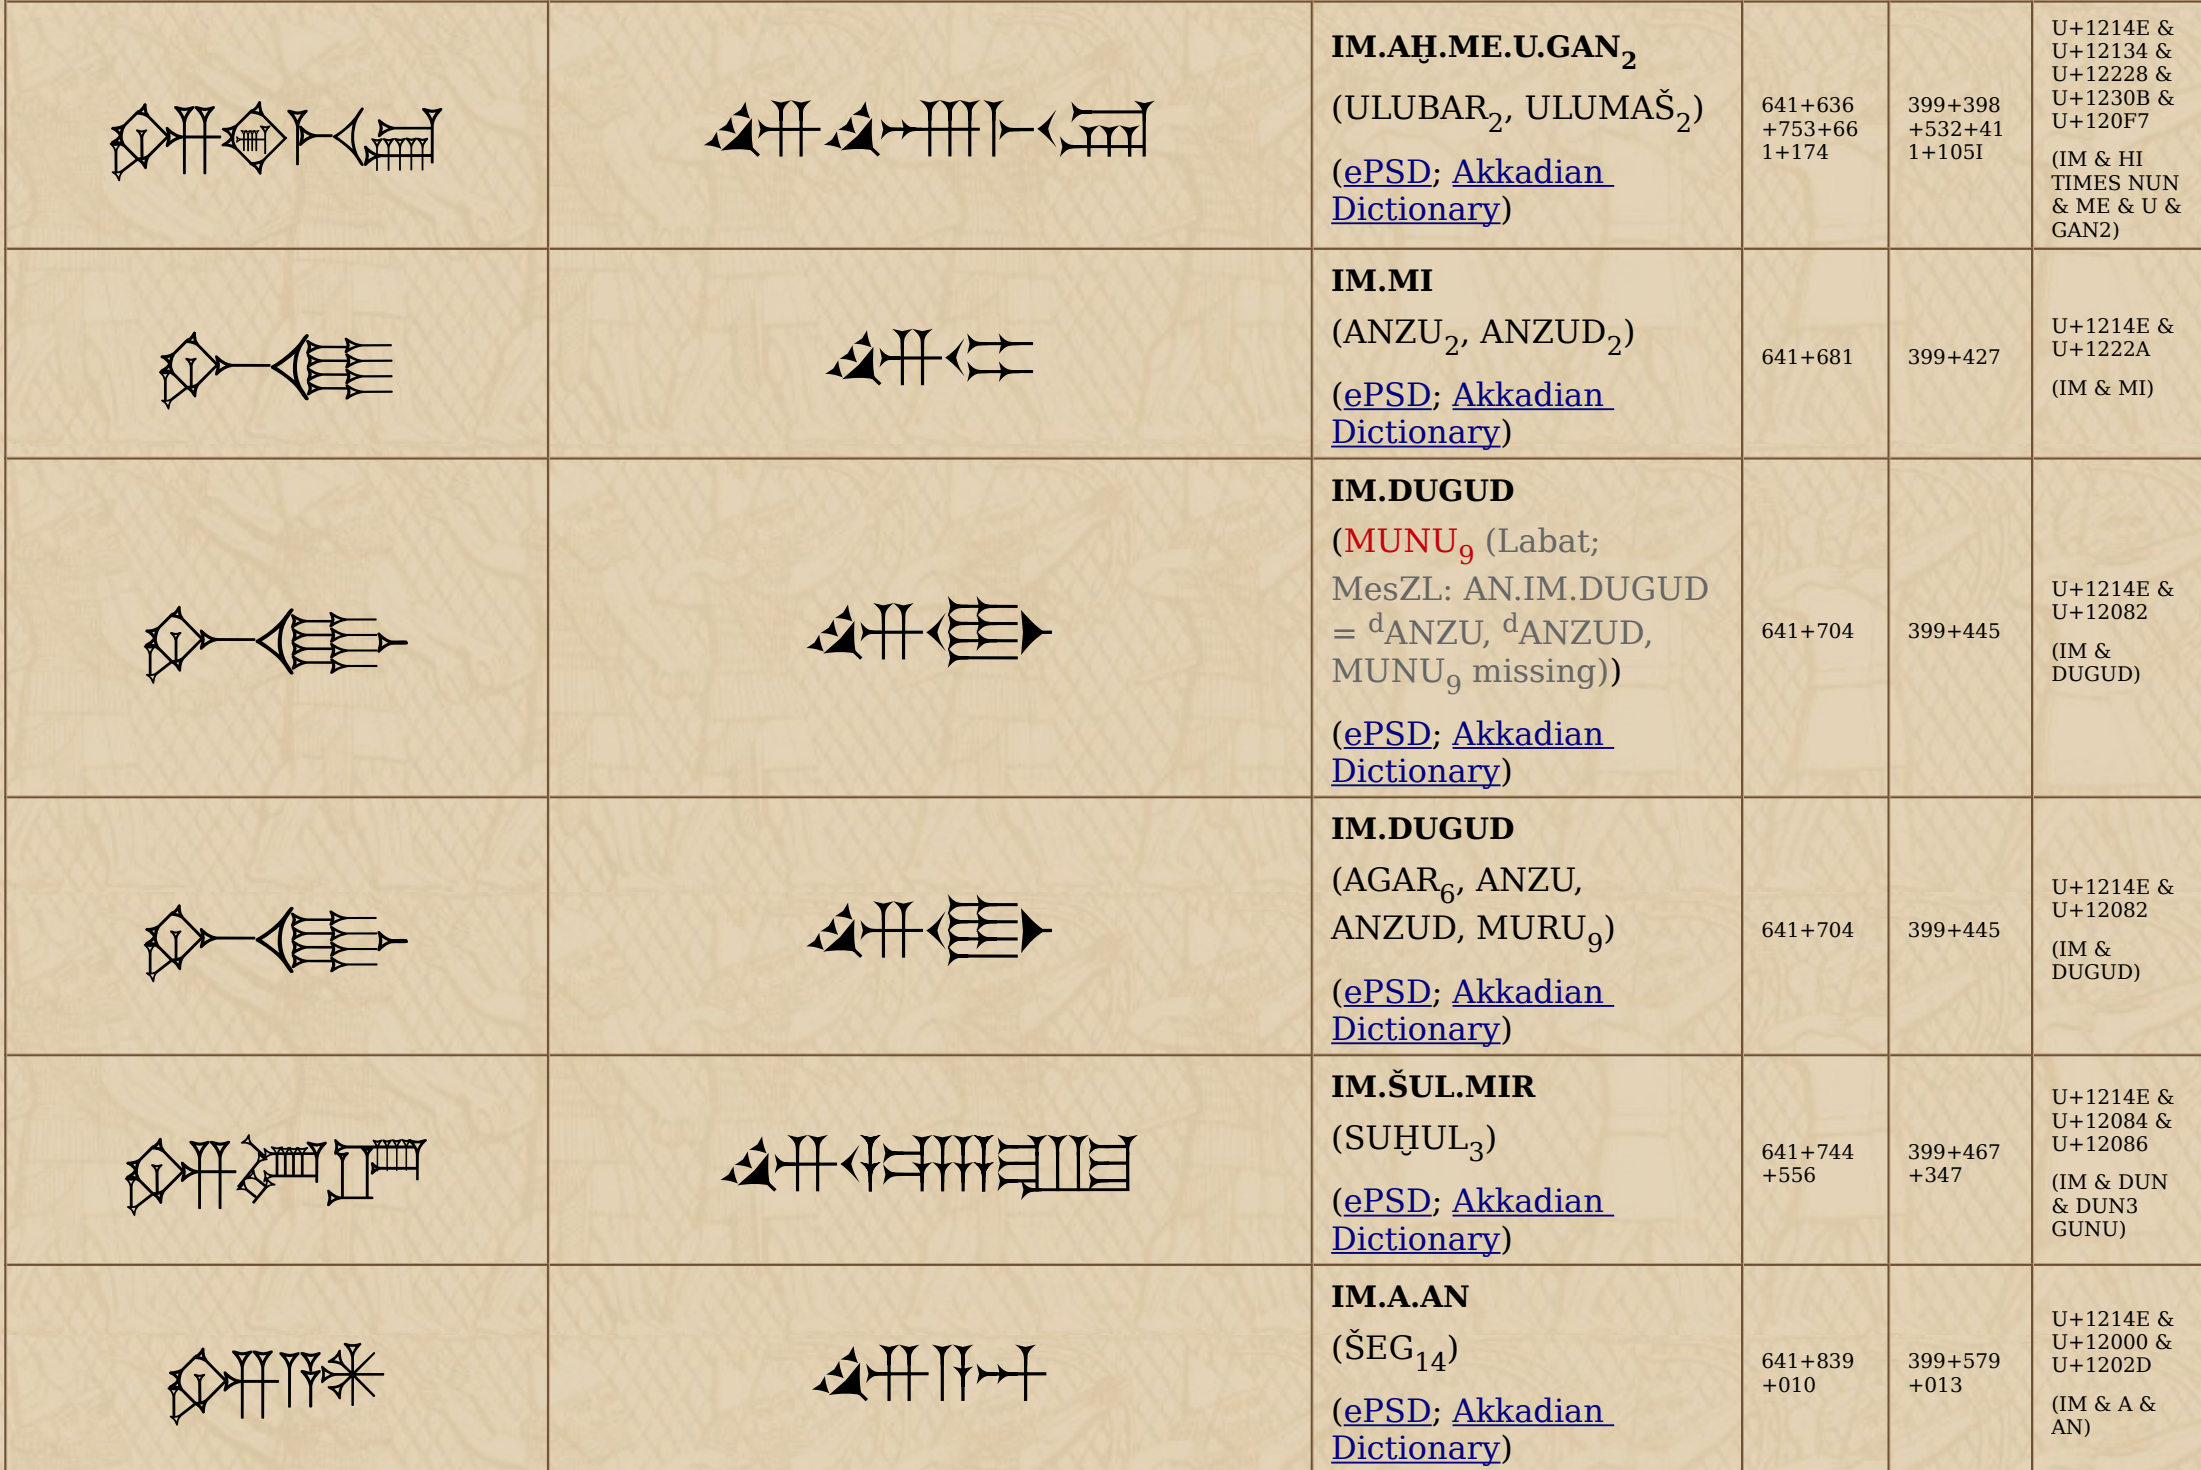 𒅎𒄴𒈨𒌋𒃷 𒅎𒄴𒈨𒌋𒃷 IM.AḪ.ME.U.GAN₂
(ULUBAR₂, ULUMAŠ₂)
(ePSD; Akkadian
Dictionary)
641+636
+753+66
1+174
399+398
+532+41
1+105I
U+1214E &
U+12134 &
U+12228 &
U+1230B &
U+120F7
(IM & HI
TIMES NUN
& ME & U &
GAN2)
𒅎𒈪 𒅎𒈪 IM.MI
(ANZU₂, ANZUD₂)
(ePSD; Akkadian
Dictionary)
641+681
399+427
U+1214E &
U+1222A
(IM & MI)
𒅎𒂂 𒅎𒂂 IM.DUGUD
(MUNU₉ (Labat;
MesZL: AN.IM.DUGUD
= ᵈANZU, ᵈANZUD,
MUNU₉ missing))
(ePSD; Akkadian
Dictionary)
641+704
399+445
U+1214E &
U+12082
(IM &
DUGUD)
𒅎𒂂 𒅎𒂂 IM.DUGUD
(AGAR₆, ANZU,
ANZUD, MURU₉)
(ePSD; Akkadian
Dictionary)
641+704
399+445
U+1214E &
U+12082
(IM &
DUGUD)
𒅎𒂄𒂆 𒅎𒂄𒂆 IM.ŠUL.MIR
(SUḪUL₃)
(ePSD; Akkadian
Dictionary)
641+744
+556
399+467
+347
U+1214E &
U+12084 &
U+12086
(IM & DUN
& DUN3
GUNU)
𒅎𒀀𒀭 𒅎𒀀𒀭 IM.A.AN
(ŠEG₁₄)
(ePSD; Akkadian
Dictionary)
641+839
+010
399+579
+013
U+1214E &
U+12000 &
U+1202D
(IM & A &
AN)